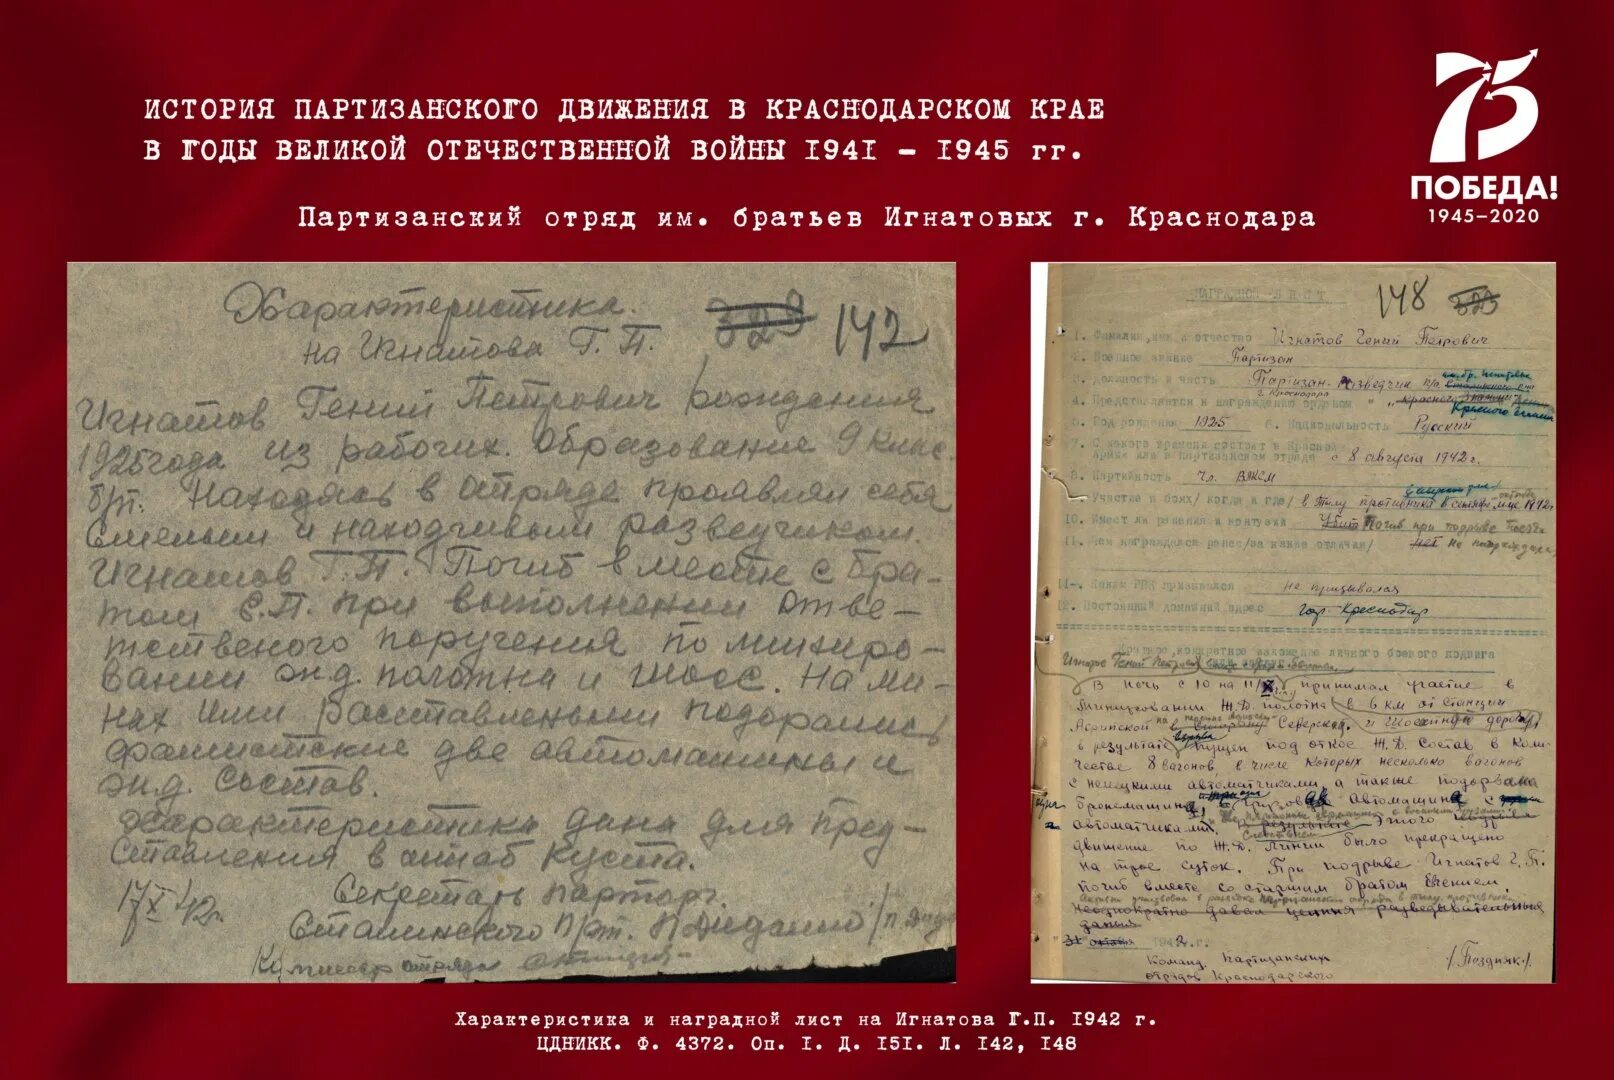 ИСТОРИЯ ПАРТИЗАНСКОГО ДВИЖЕНИЯ В КРАСНОДАРСКОМ КРАЕ
В ГОДЫ ВЕЛИКОЙ ОТЕЧЕСТВЕННОЙ ВОЙНЫ 1941 – 1945 гг.
Партизанский отряд им. братьев Игнатовых г. Краснодара
75
ПОБЕДА!
1945–2020
Характеристика.
на Игнатова Г. П.
323 142
Игнатов Гений Петрович рождения
1925 года из рабочих. Образование 9 клас.
б/п. Находясь в отряде проявлял себя
смелым и находчивым разведчиком.
Игнатов Г.П. Погиб вместе с бра-
том Е.П. при выполнении отве-
тственого поручения по миниро-
вании ж.д. полотна и шосс. На ми-
нах ими расставлеными подорались
фашистские две автомашины и
ж.д. состав.
Характеристика дана для пред-
ставления в штаб куста.
17/X 42г.
Секретарь парторг.
Сталинского п/от.
Комиссар отряда
НАГРАДНОЙ ЛИСТ
148 323
1. Фамилия, имя и отчество Игнатов Гений Петрович
2. Военное звание Партизан
3. Должность и часть Партизан-разведчик п/о им. бр. Игнатовых
г. Краснодара
4. Представляется к награждению орденом "Красного Знамени
5. Год рождения 1925 6. Национальность Русский
7. С какого времени состоит в Красной
армии или в партизанском отряде с 8 августа 1942 г.
8. Партийность Чл. ВЛКСМ
Участие в боях/ когда и где/ в тылу противника в 1942 г.
10. Имеет ли ранения и контузии Убит Погиб при подрыве поезда
11. Чем награждался ранее/за какие отличия/ нет не награждался
11-. Каким РВК призывался не призывался
12. Постоянный домашний адрес гор. Краснодар
Краткое, конкретное изложение личного боевого подвига
Игнатов Гений Петрович
В ночь с 10 на 11/X принимал участие в
минировании Ж.Д. полотна в 6 км от станции
Северской. и шоссейной дороги
в результате пущен под откос Ж.Д. состав в коли-
честве 8 вагонов в числе которых несколько вагонов
с немецкими автоматчиками, а также подорвана
бронемашина, автомашина с
автоматчиками. этого
движение по Ж.Д. линии было прекращено
на трое суток. При подрыве Игнатов Г. П.
погиб вместе со старшим братом Евгением.
Неоднократно давал ценные разведывательные
данные
"31" октября 1942 г.
Команд. Партизанских
отрядов Краснодарского
/Поздняк/.
Характеристика и наградной лист на Игнатова Г.П. 1942 г.
ЦДНИКК. Ф. 4372. Оп. 1. Д. 151. Л. 142, 148